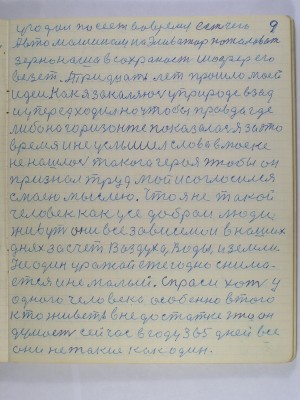 9
урожай посеет вовремя семена
Автомашинам на Элеватор пожаловат
зерно наше в сохранаст шофер его
везет. Тридцать лет прошло моей
идеи. Как я закаляюсь у природе взад
и уперед ходил но чтобы правда где
либо на горизонте показалася за это
время и не услышил слова в моене
не нашлось такога героя чтобы он
признал труд мой и согласился
с маею мыслею. Что я не такой
человек как усе добраи люди
живут они все зависимои в наших
днях за счет Воздуха, Воды и земли
Не один урожай ежегодно снима-
ется и не малый. Спраси хоть у
одного человека особенно в того
кто живет в недостатке и то он
думаеть сейчас в году 365 дней все
они нетакие как один.